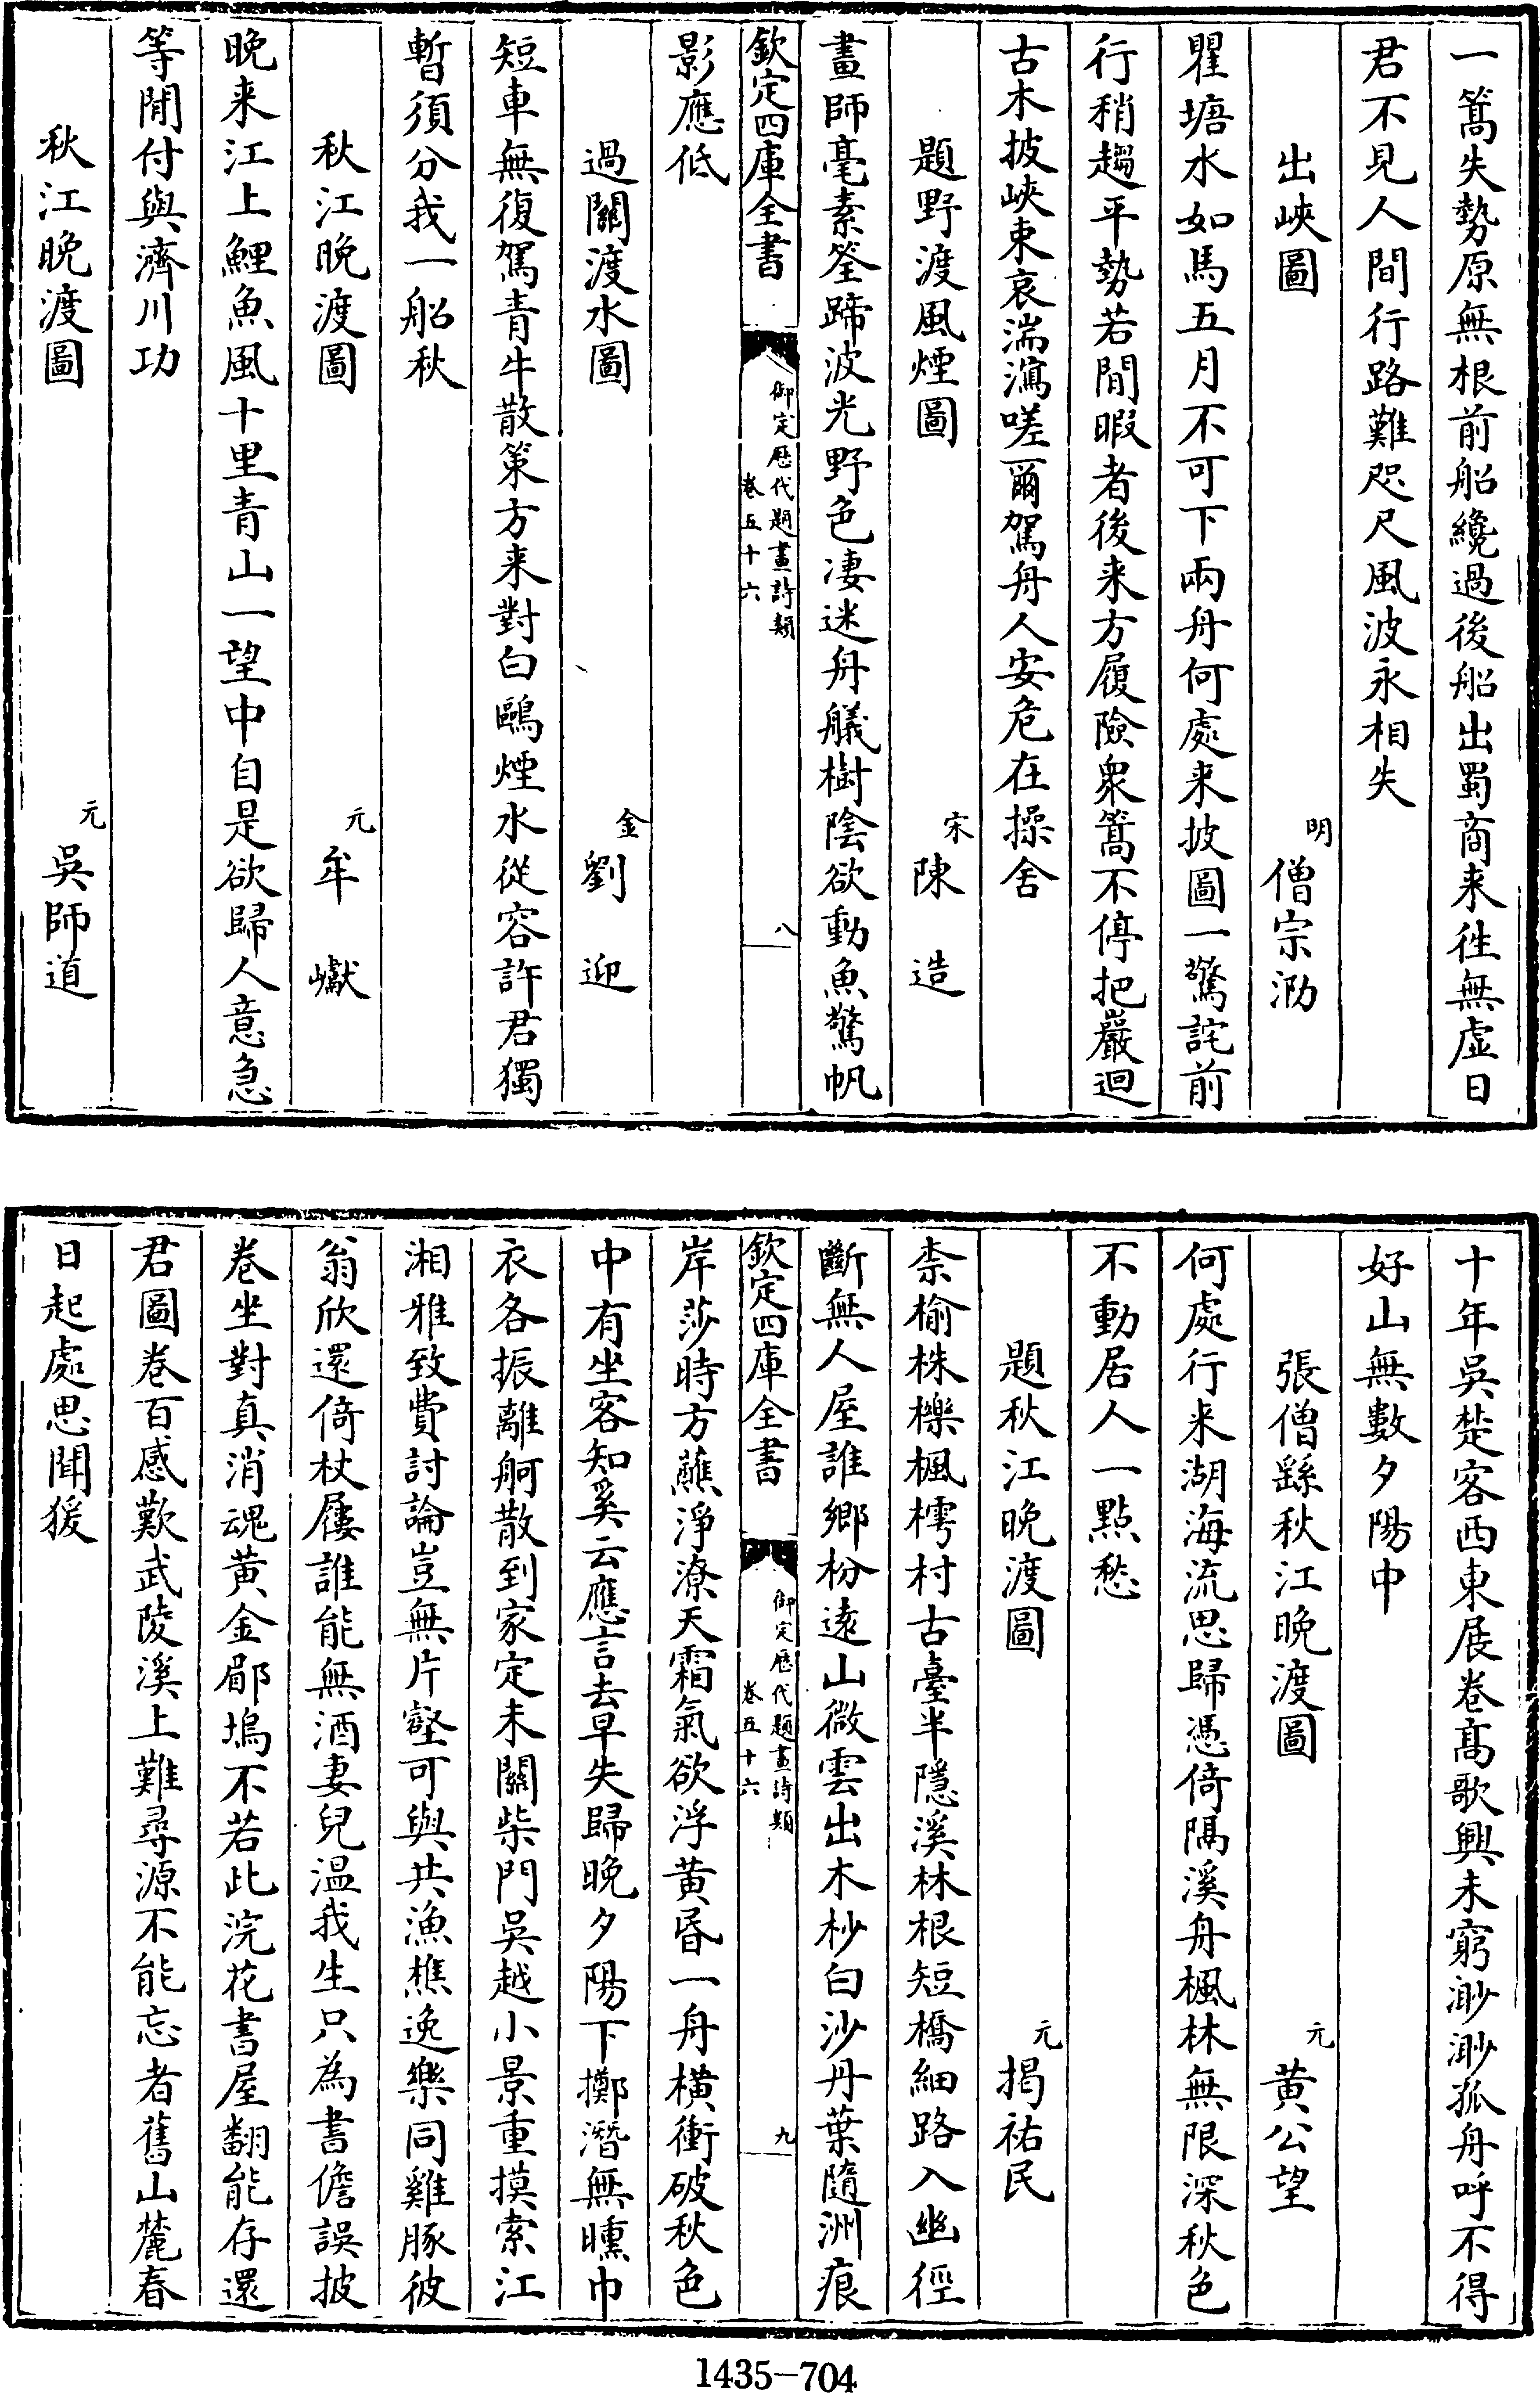 一篙失勢原無根前船纔過後船出蜀商来徃無虛日
君不見人間行路難咫尺風波永相失
出峽圖 明 僧宗泐
瞿塘水如馬五月不可下兩舟何處来披圖一驚詫前
行稍趨平勢若閒暇者後来方履險衆篙不停把巖迴
古木披峽束哀湍瀉嗟爾駕舟人安危在操舍
題野渡風煙圖 宋 陳造
畫師毫素筌蹄波光野色凄迷舟艤樹陰欲動魚驚帆
欽定四庫全書 御定歷代題畫詩類 卷五十六 八
影應低
過關渡水圖 金 劉迎
短車無復駕青牛散策方来對白鷗煙水從容許君獨
暫須分我一船秋
秋江晚渡圖 元 牟巘
晚来江上鯉魚風十里青山一望中自是欲歸人意急
等閒付與濟川功
秋江晚渡圖 元 吳師道
十年吳楚客西東展卷髙歌興未窮渺渺孤舟呼不得
好山無數夕陽中
張僧繇秋江晚渡圖 元 黃公望
何處行来湖海流思歸憑倚隔溪舟楓林無限深秋色
不動居人一點愁
題秋江晚渡圖 元 揭祐民
柰榆株櫟楓樗村古臺半隱溪林根短橋細路入幽徑
斷無人屋誰鄉枌逺山微雲出木杪白沙丹葉隨洲痕
欽定四庫全書 御定歷代題畫詩類 卷五十六 九
岸莎時方蘸淨潦天霜氣欲浮黃昏一舟橫衝破秋色
中有坐客知奚云應言去早失歸晚夕陽下擲潛無曛巾
衣各振離舸散到家定未關柴門吳越小景重摸索江
湘雅致費討論豈無片壑可與共漁樵逸樂同雞豚彼
翁欣還倚杖屨誰能無酒妻兒温我生只為書儋誤披
卷坐對真消魂黃金郿塢不若此浣花書屋翻能存還
君圖卷百感歎武陵溪上難尋源不能忘者舊山麓春
日起處思聞猨
1435-704